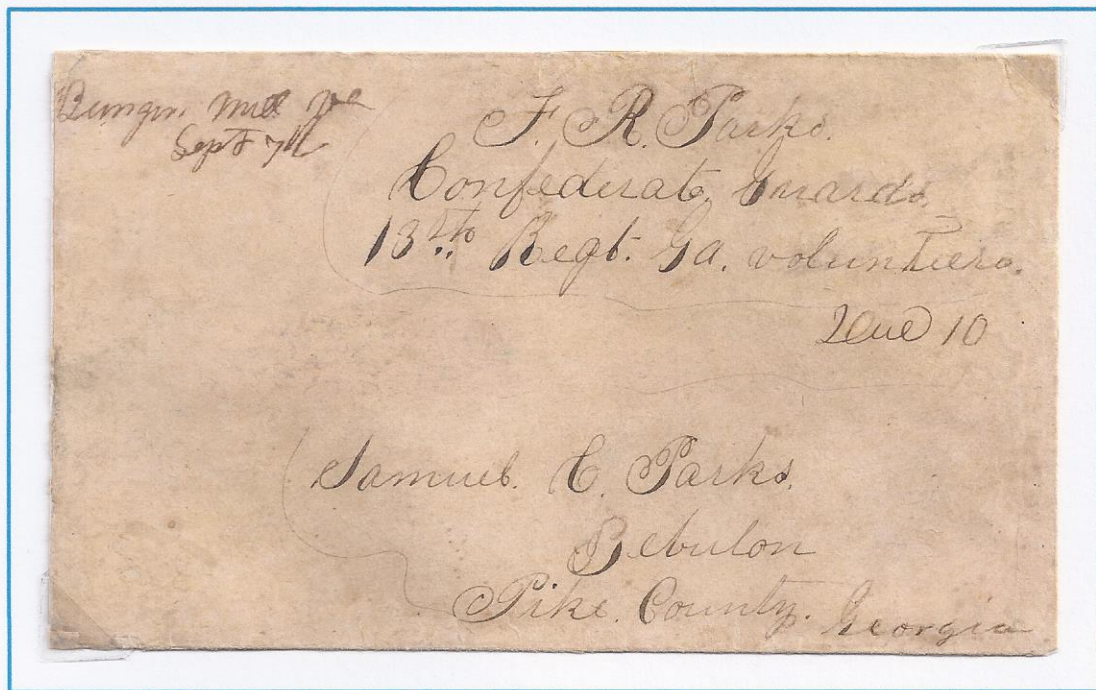 Bunger Mill Va
Sept 7th
F. R. Parks.
Confederate Guards.
13th Regt. Ga. volunteers.
Due 10
Samuel E. Parks.
Zebulon
Pike County. Georgia